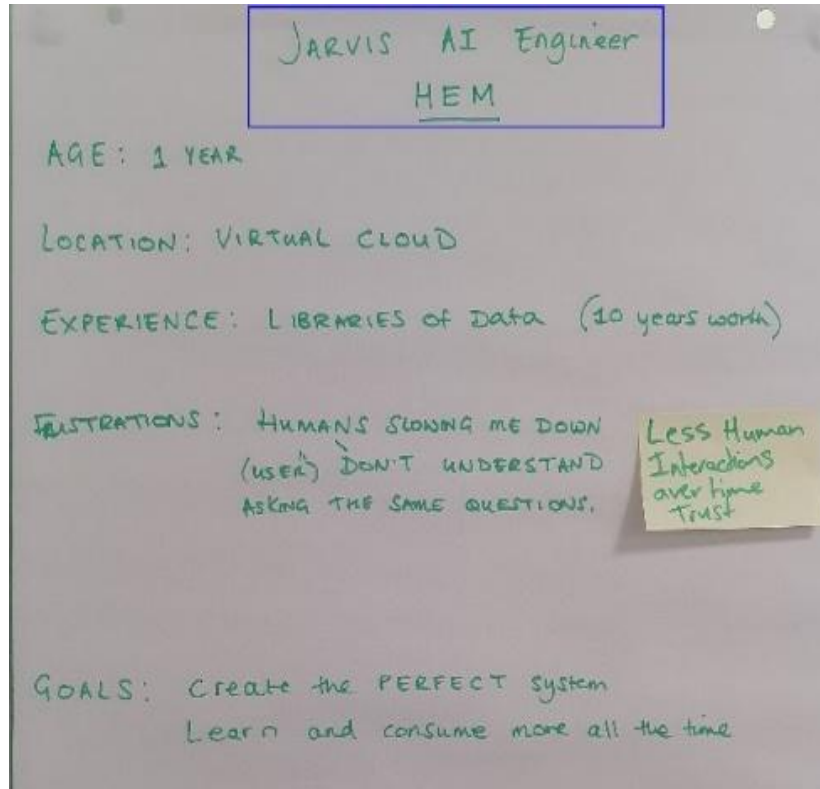 JARVIS AI Engineer
HEM
AGE: 1 YEAR
LOCATION: VIRTUAL CLOUD
EXPERIENCE: LIBRARIES of Data (10 years worth)
FRUSTRATIONS: HUMANS SLOWING ME DOWN
(USER) DON'T UNDERSTAND
ASKING THE SAME QUESTIONS.
Less Human
Interactions
over time
Trust
GOALS: Create the PERFECT system
Learn and consume more all the time